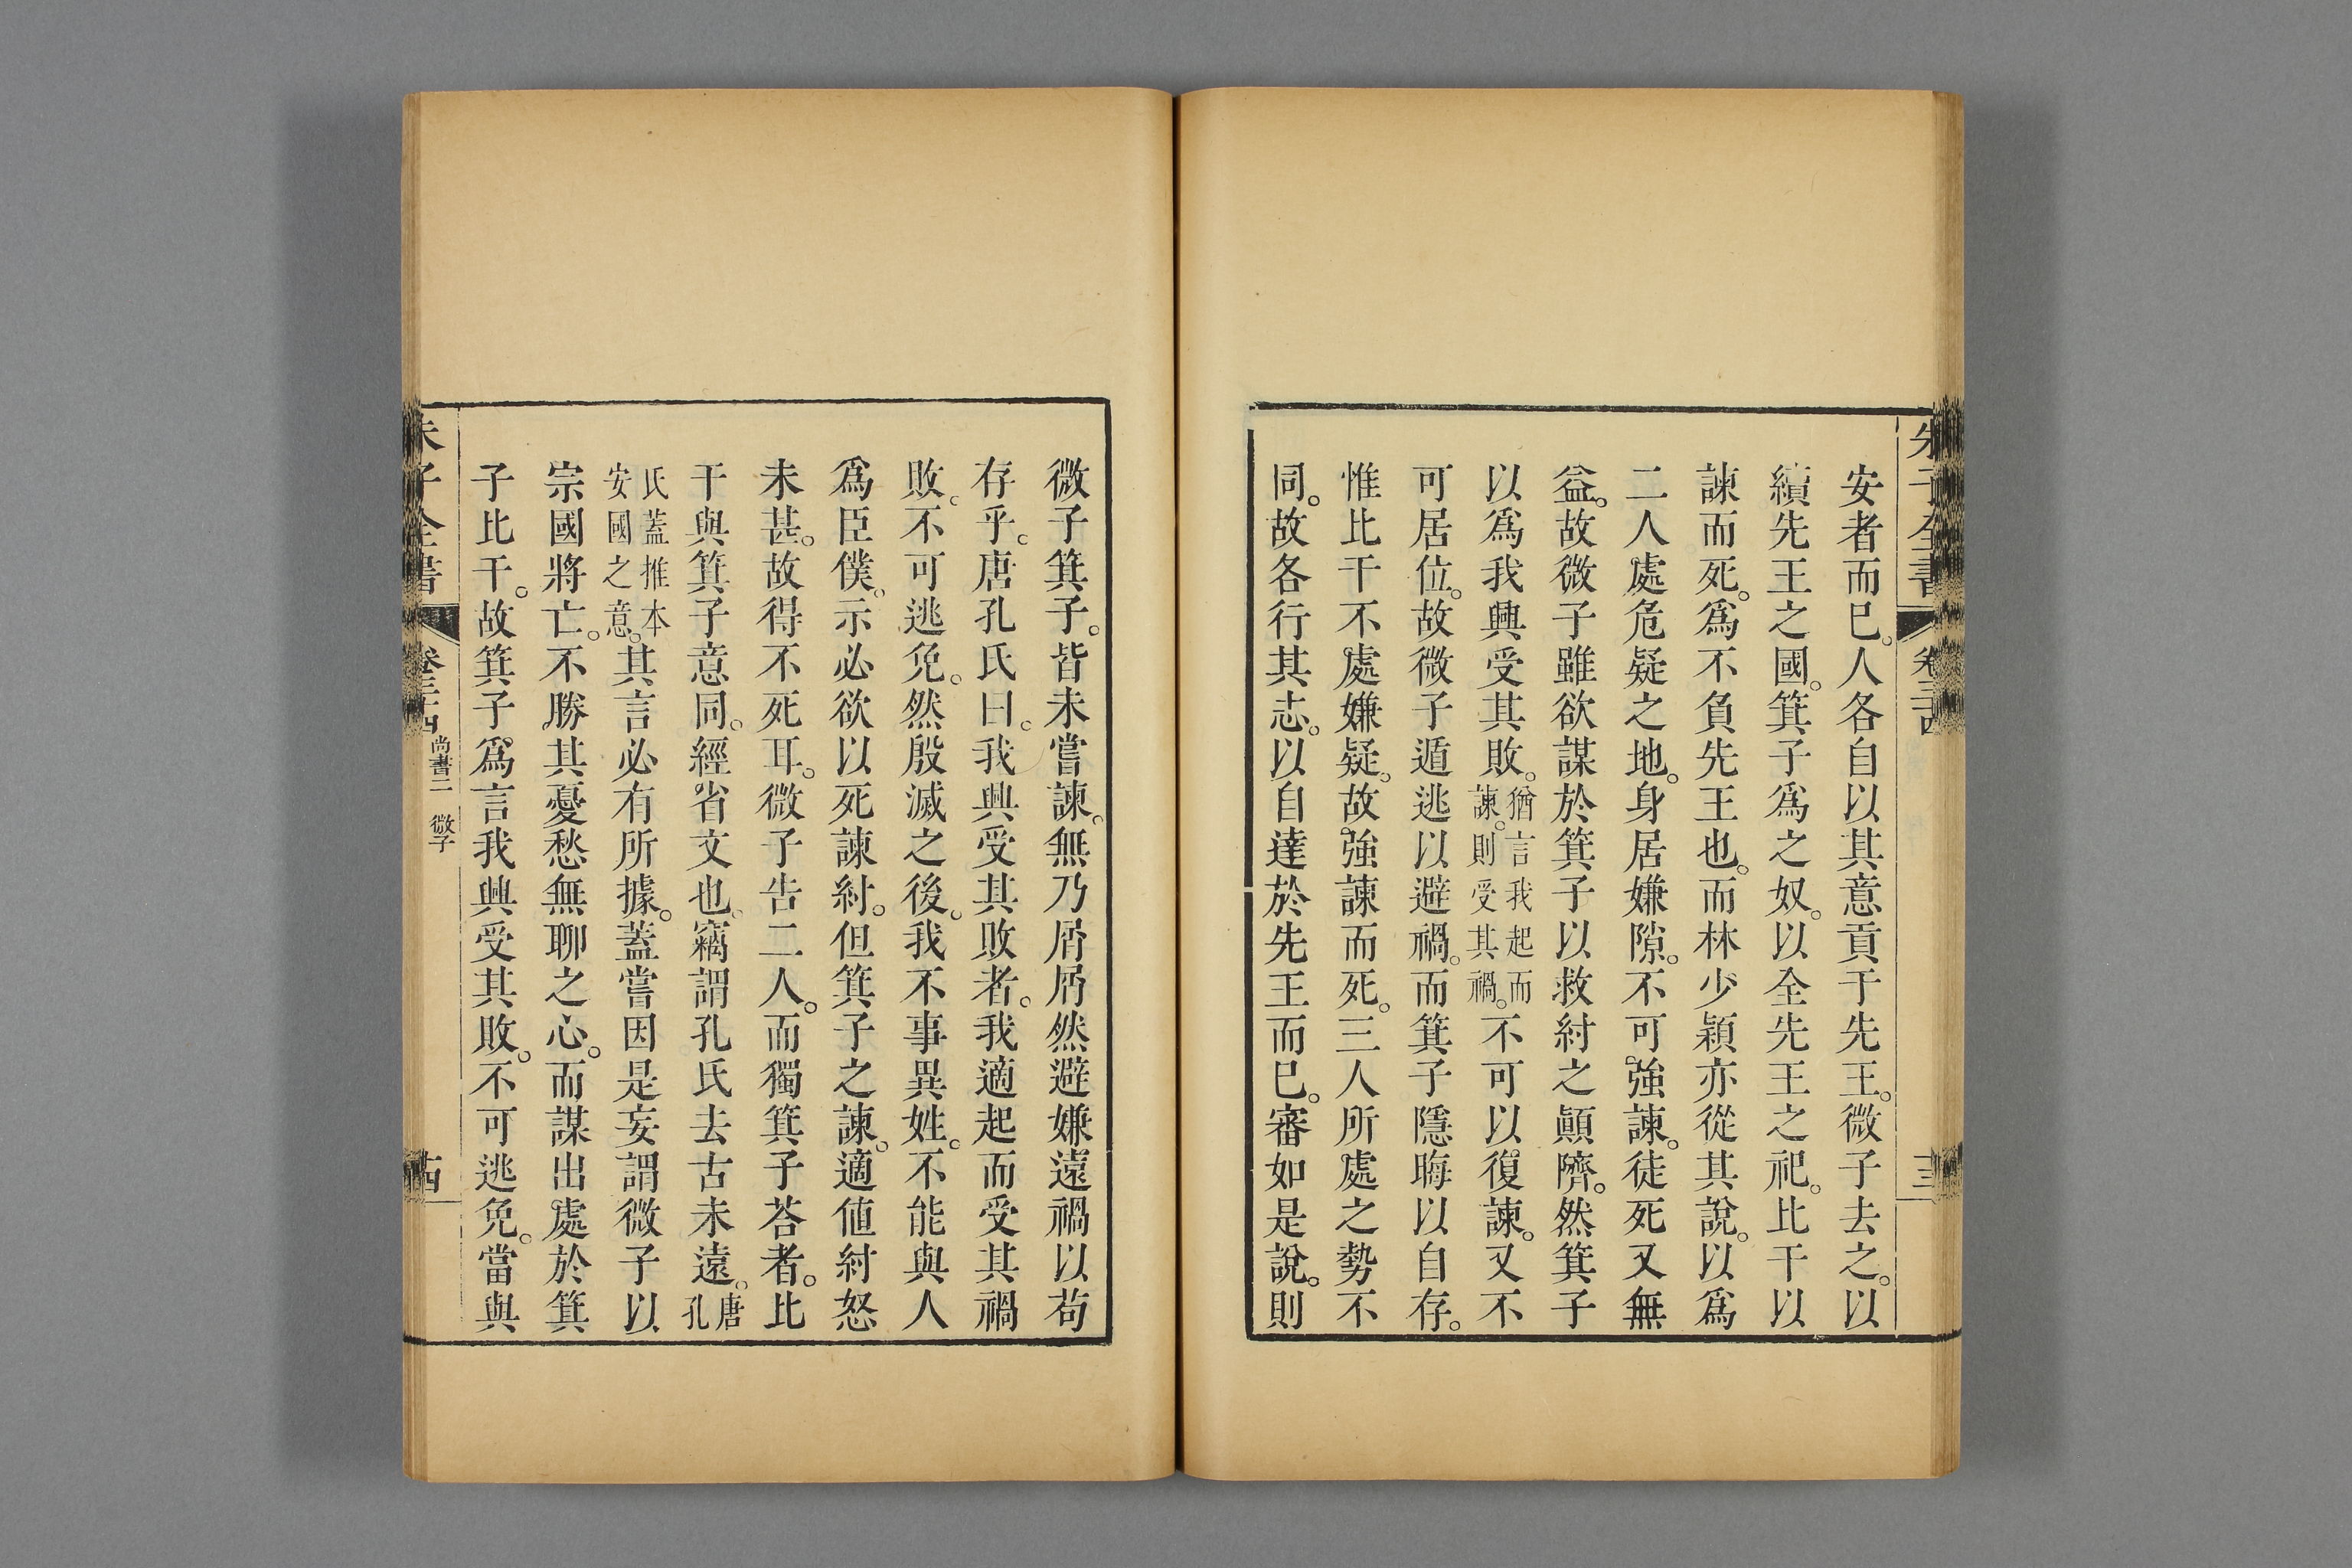 朱子全書 卷三十四 十三
安者而已。人各自以其意貢于先王。微子去之。以
續先王之國。箕子爲之奴。以全先王之祀。比干以
諫而死。爲不負先王也。而林少穎亦從其說。以爲
二人處危疑之地。身居嫌隙。不可強諫。徒死又無
益。故微子雖欲謀於箕子以救紂之顚隮。然箕子
以爲我興受其敗。猶言我起而諫。則受其禍。不可以復諫。又不
可居位。故微子遁逃以避禍。而箕子隱晦以自存。
惟比干不處嫌疑。故強諫而死。三人所處之勢不
同。故各行其志。以自達於先王而已。審如是說。則
微子箕子。皆未嘗諫。無乃屑屑然避嫌遠禍以苟
存乎。唐孔氏曰。我興受其敗者。我適起而受其禍
敗。不可逃免。然殷滅之後。我不事異姓。不能與人
爲臣僕。示必欲以死諫紂。但箕子之諫。適値紂怒
未甚。故得不死耳。微子告二人。而獨箕子荅者。比
干與箕子意同。經省文也。竊謂孔氏去古未遠。唐孔
氏蓋推本安國之意。其言必有所據。蓋嘗因是妄謂微子以
宗國將亡。不勝其憂愁無聊之心。而謀出處於箕
子比干。故箕子爲言我興受其敗。不可逃免。當與
朱子全書 卷三十四 尚書二 微子 十四